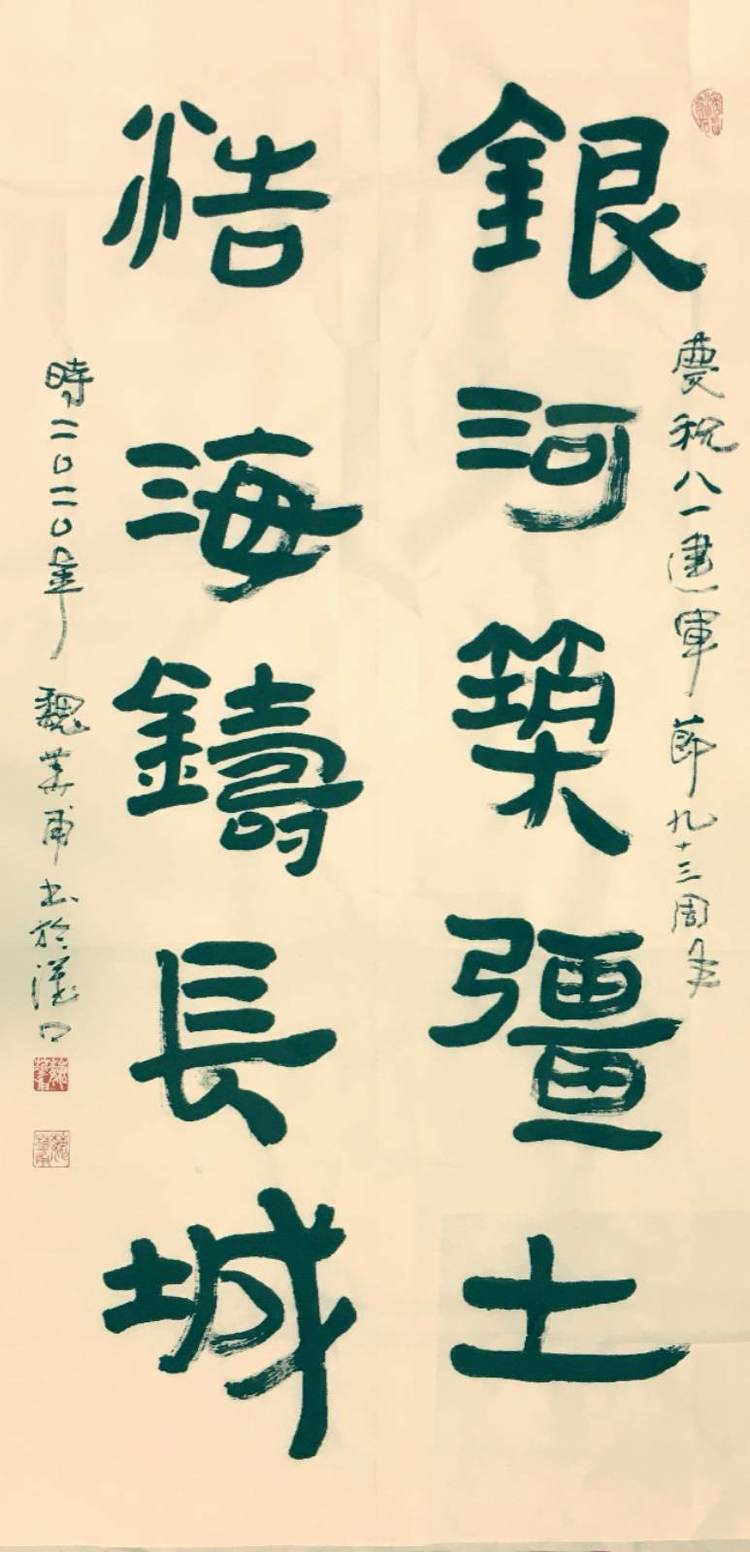 慶祝八一建軍節九十三周年
銀河築疆土
浩海鑄長城
時二0二0年 魏華甫書於漢口